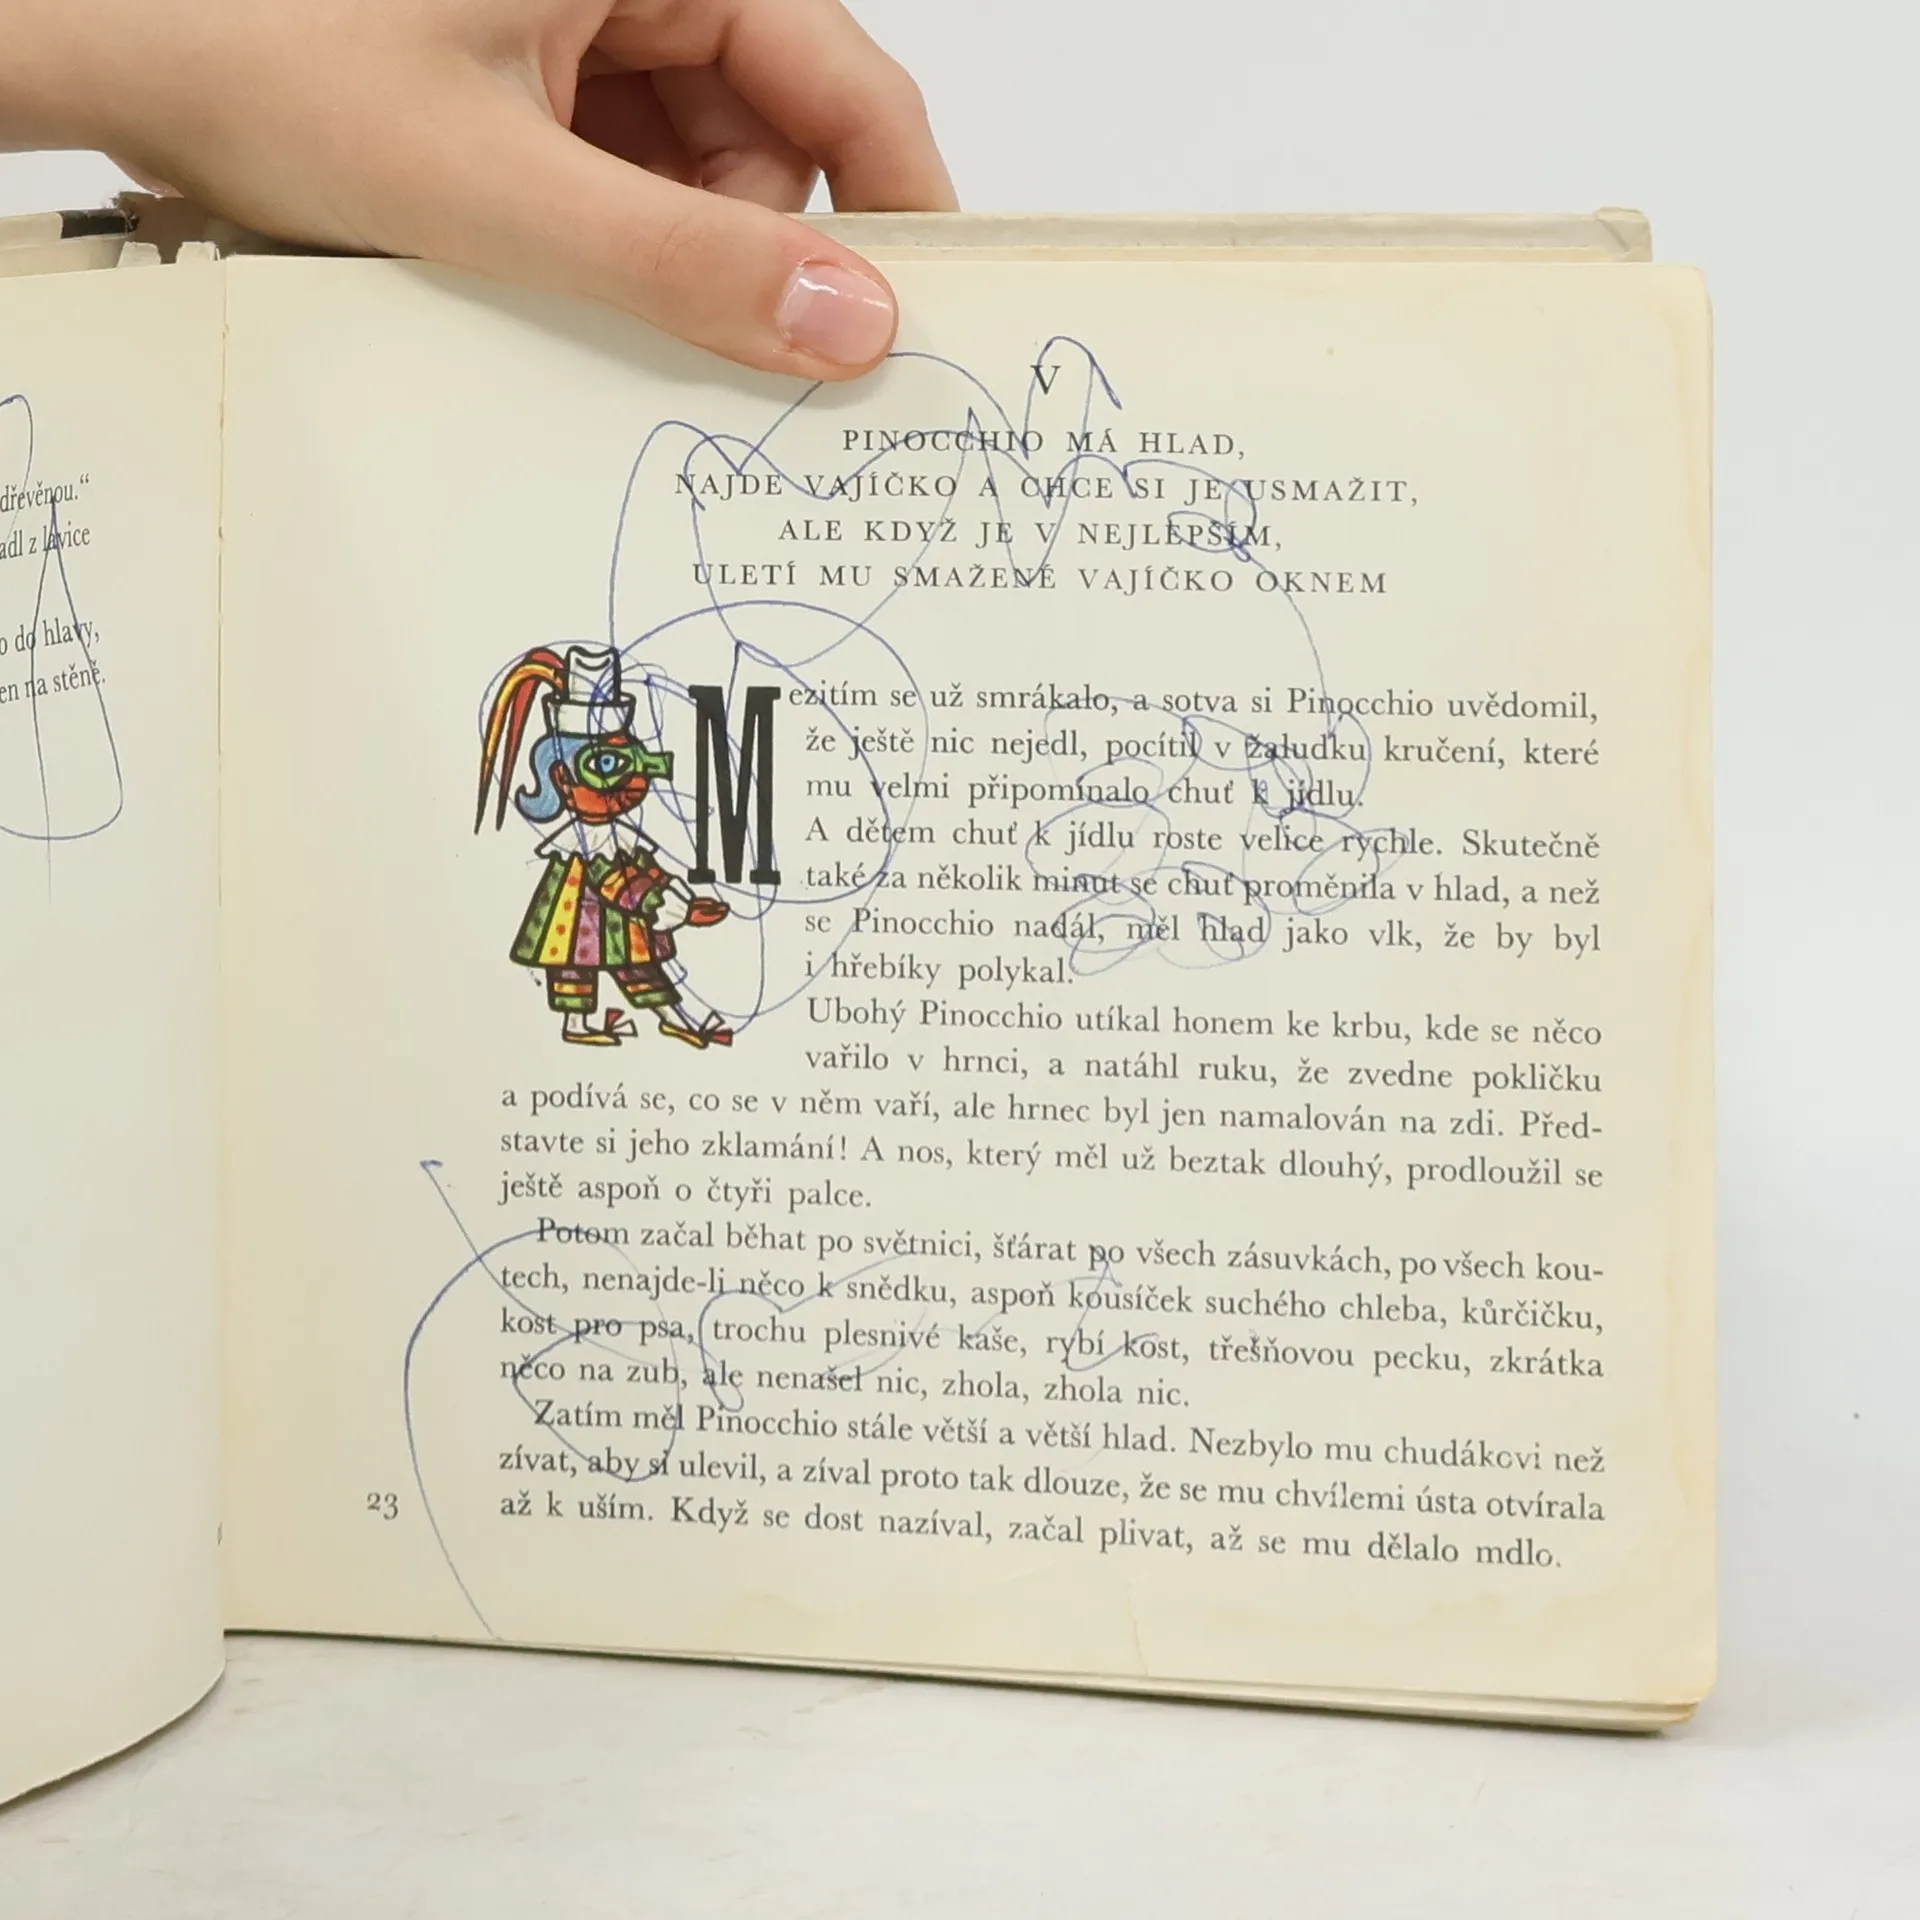 dřevěnou.“
z lavice
do hlavy,
na stěně.
V
PINOCCHIO MÁ HLAD,
NAJDE VAJÍČKO A CHCE SI JE USMAŽIT,
ALE KDYŽ JE V NEJLEPŠÍM,
ULETÍ MU SMAŽENÉ VAJÍČKO OKNEM
Mezitím se už smrákalo, a sotva si Pinocchio uvědomil,
že ještě nic nejedl, pocítil v žaludku kručení, které
mu velmi připomínalo chuť k jídlu.
A dětem chuť k jídlu roste velice rychle. Skutečně
také za několik minut se chuť proměnila v hlad, a než
se Pinocchio nadál, měl hlad jako vlk, že by byl
i hřebíky polykal.
Ubohý Pinocchio utíkal honem ke krbu, kde se něco
vařilo v hrnci, a natáhl ruku, že zvedne pokličku
a podívá se, co se v něm vaří, ale hrnec byl jen namalován na zdi. Před-
stavte si jeho zklamání! A nos, který měl už beztak dlouhý, prodloužil se
ještě aspoň o čtyři palce.
Potom začal běhat po světnici, šťárat po všech zásuvkách, po všech kou-
tech, nenajde-li něco k snědku, aspoň kousíček suchého chleba, kůrčičku,
kost pro psa, trochu plesnivé kaše, rybí kost, třešňovou pecku, zkrátka
něco na zub, ale nenašel nic, zhola, zhola nic.
Zatím měl Pinocchio stále větší a větší hlad. Nezbylo mu chudákovi než
zívat, aby si ulevil, a zíval proto tak dlouze, že se mu chvílemi ústa otvírala
až k uším. Když se dost nazíval, začal plivat, až se mu dělalo mdlo.
23